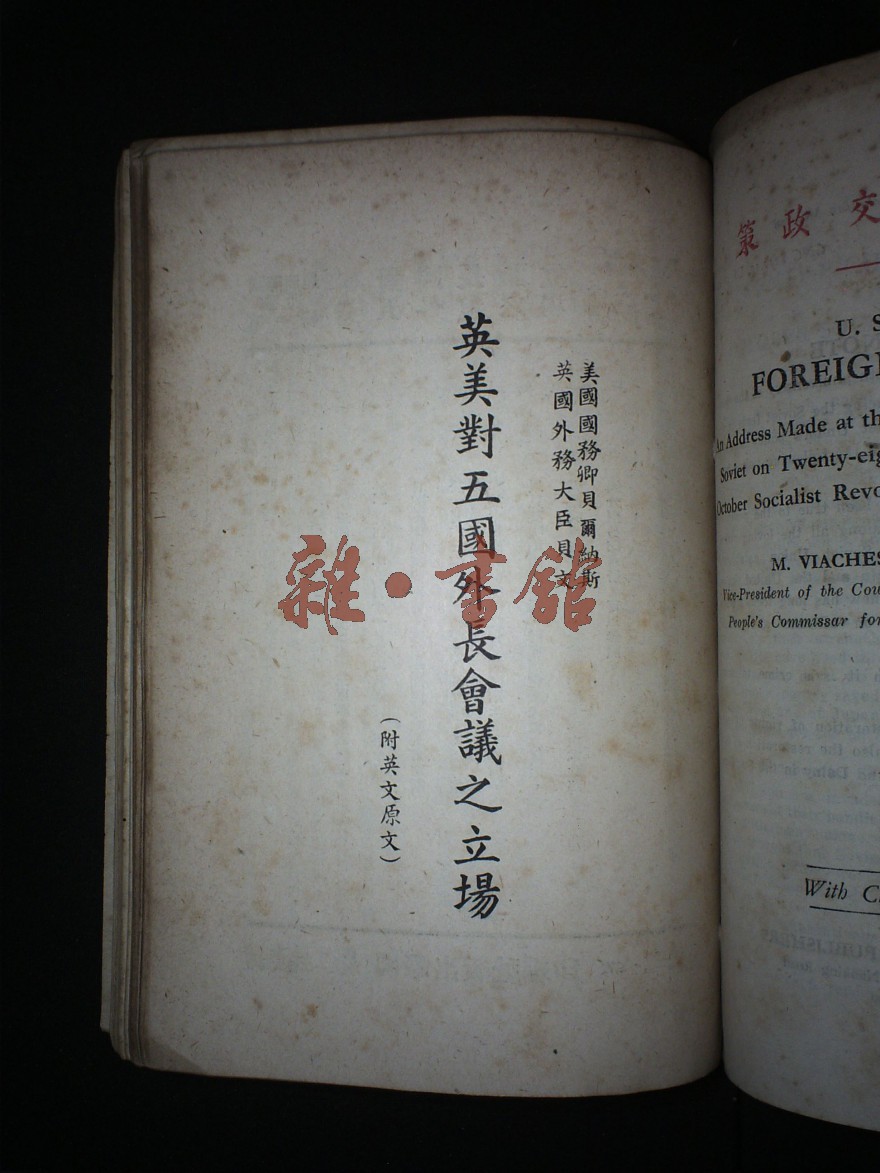 美國國務卿貝爾納斯
英國外務大臣貝文
英美對五國外長會議之立場
(附英文原文)
雜·書館
策政交
U. S
FOREIG
An Address Made at th
Soviet on Twenty-eig
October Socialist Revo
M. VIACHES
Vice-President of the Cou
People's Commissar for
With C